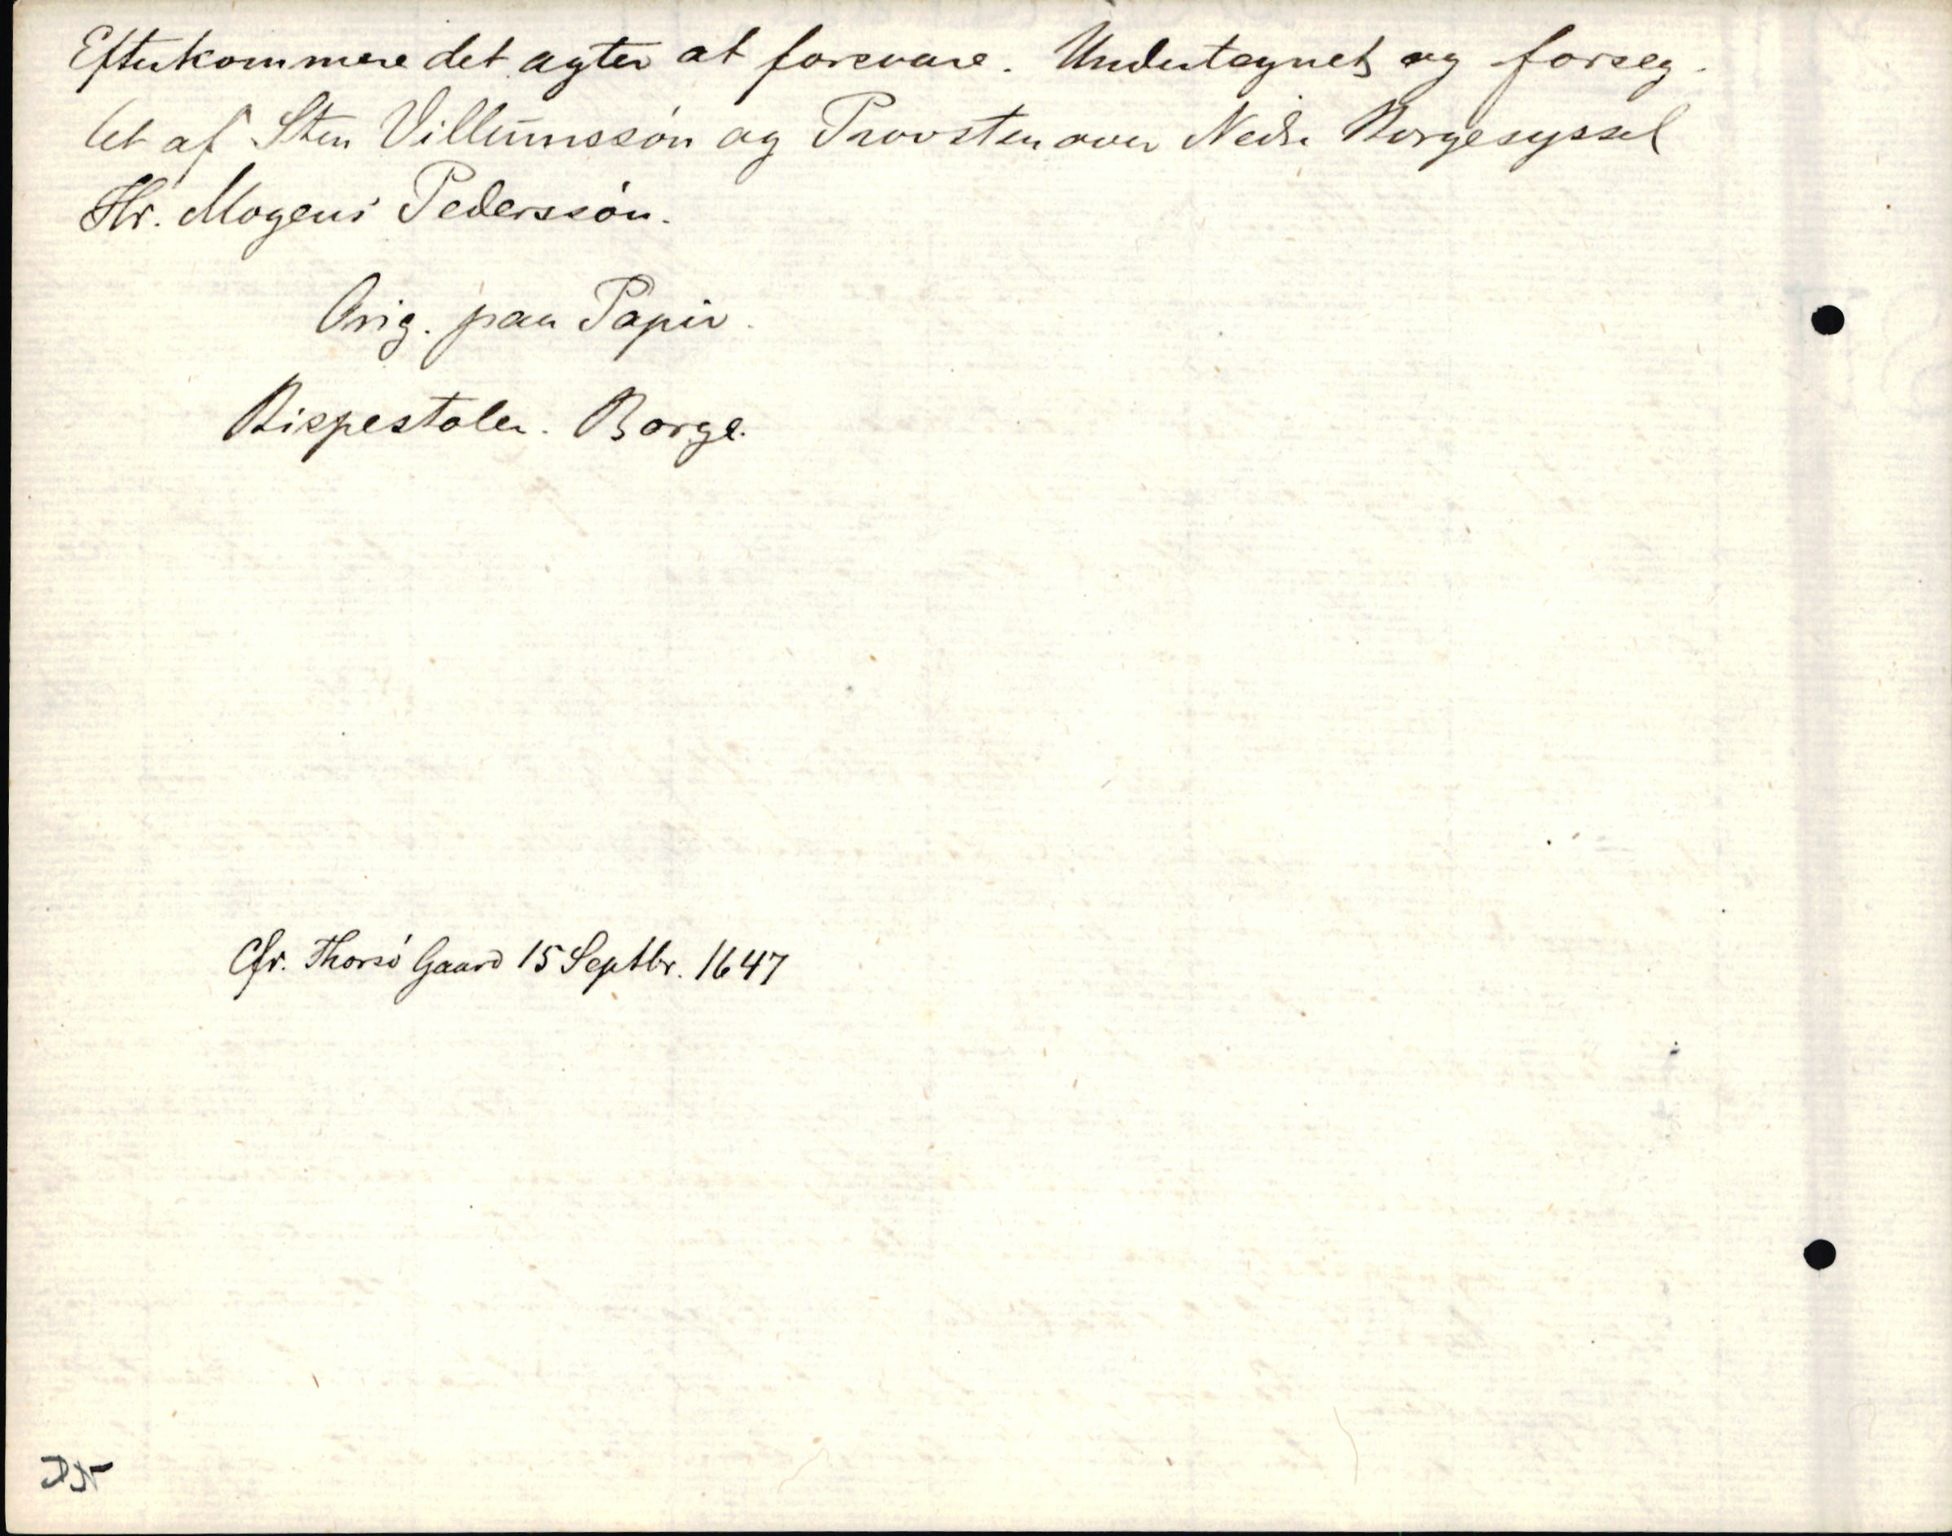 Efterkommere det agter at forsvare. Undertegnet og forseg-
let af Sten Villumssön og Provsten over Nedre Borgesyssel
Hr. Mogens Pederssön.
Orig. paa Papir.
Bispestolen. Borge.
Cfr. Thorsö Gaard 15 Septbr. 1647
DN